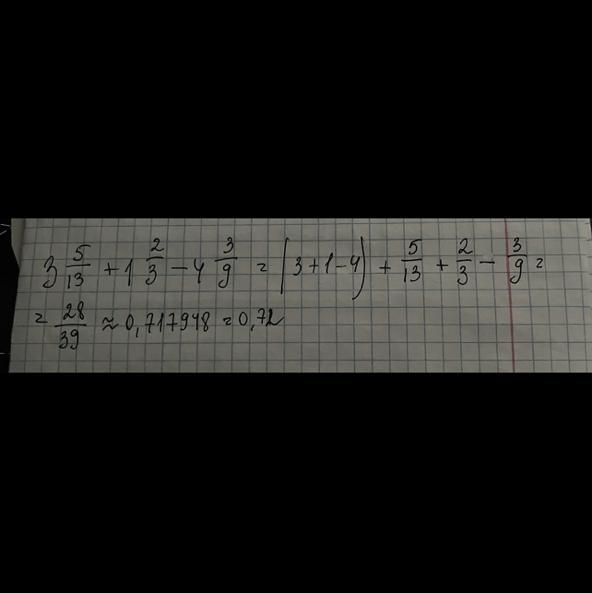 3 5/13 + 1 2/3 - 4 3/9 = (3+1-4) + 5/13 + 2/3 - 3/9 =
= 28/39 ≈ 0,717948 = 0,72